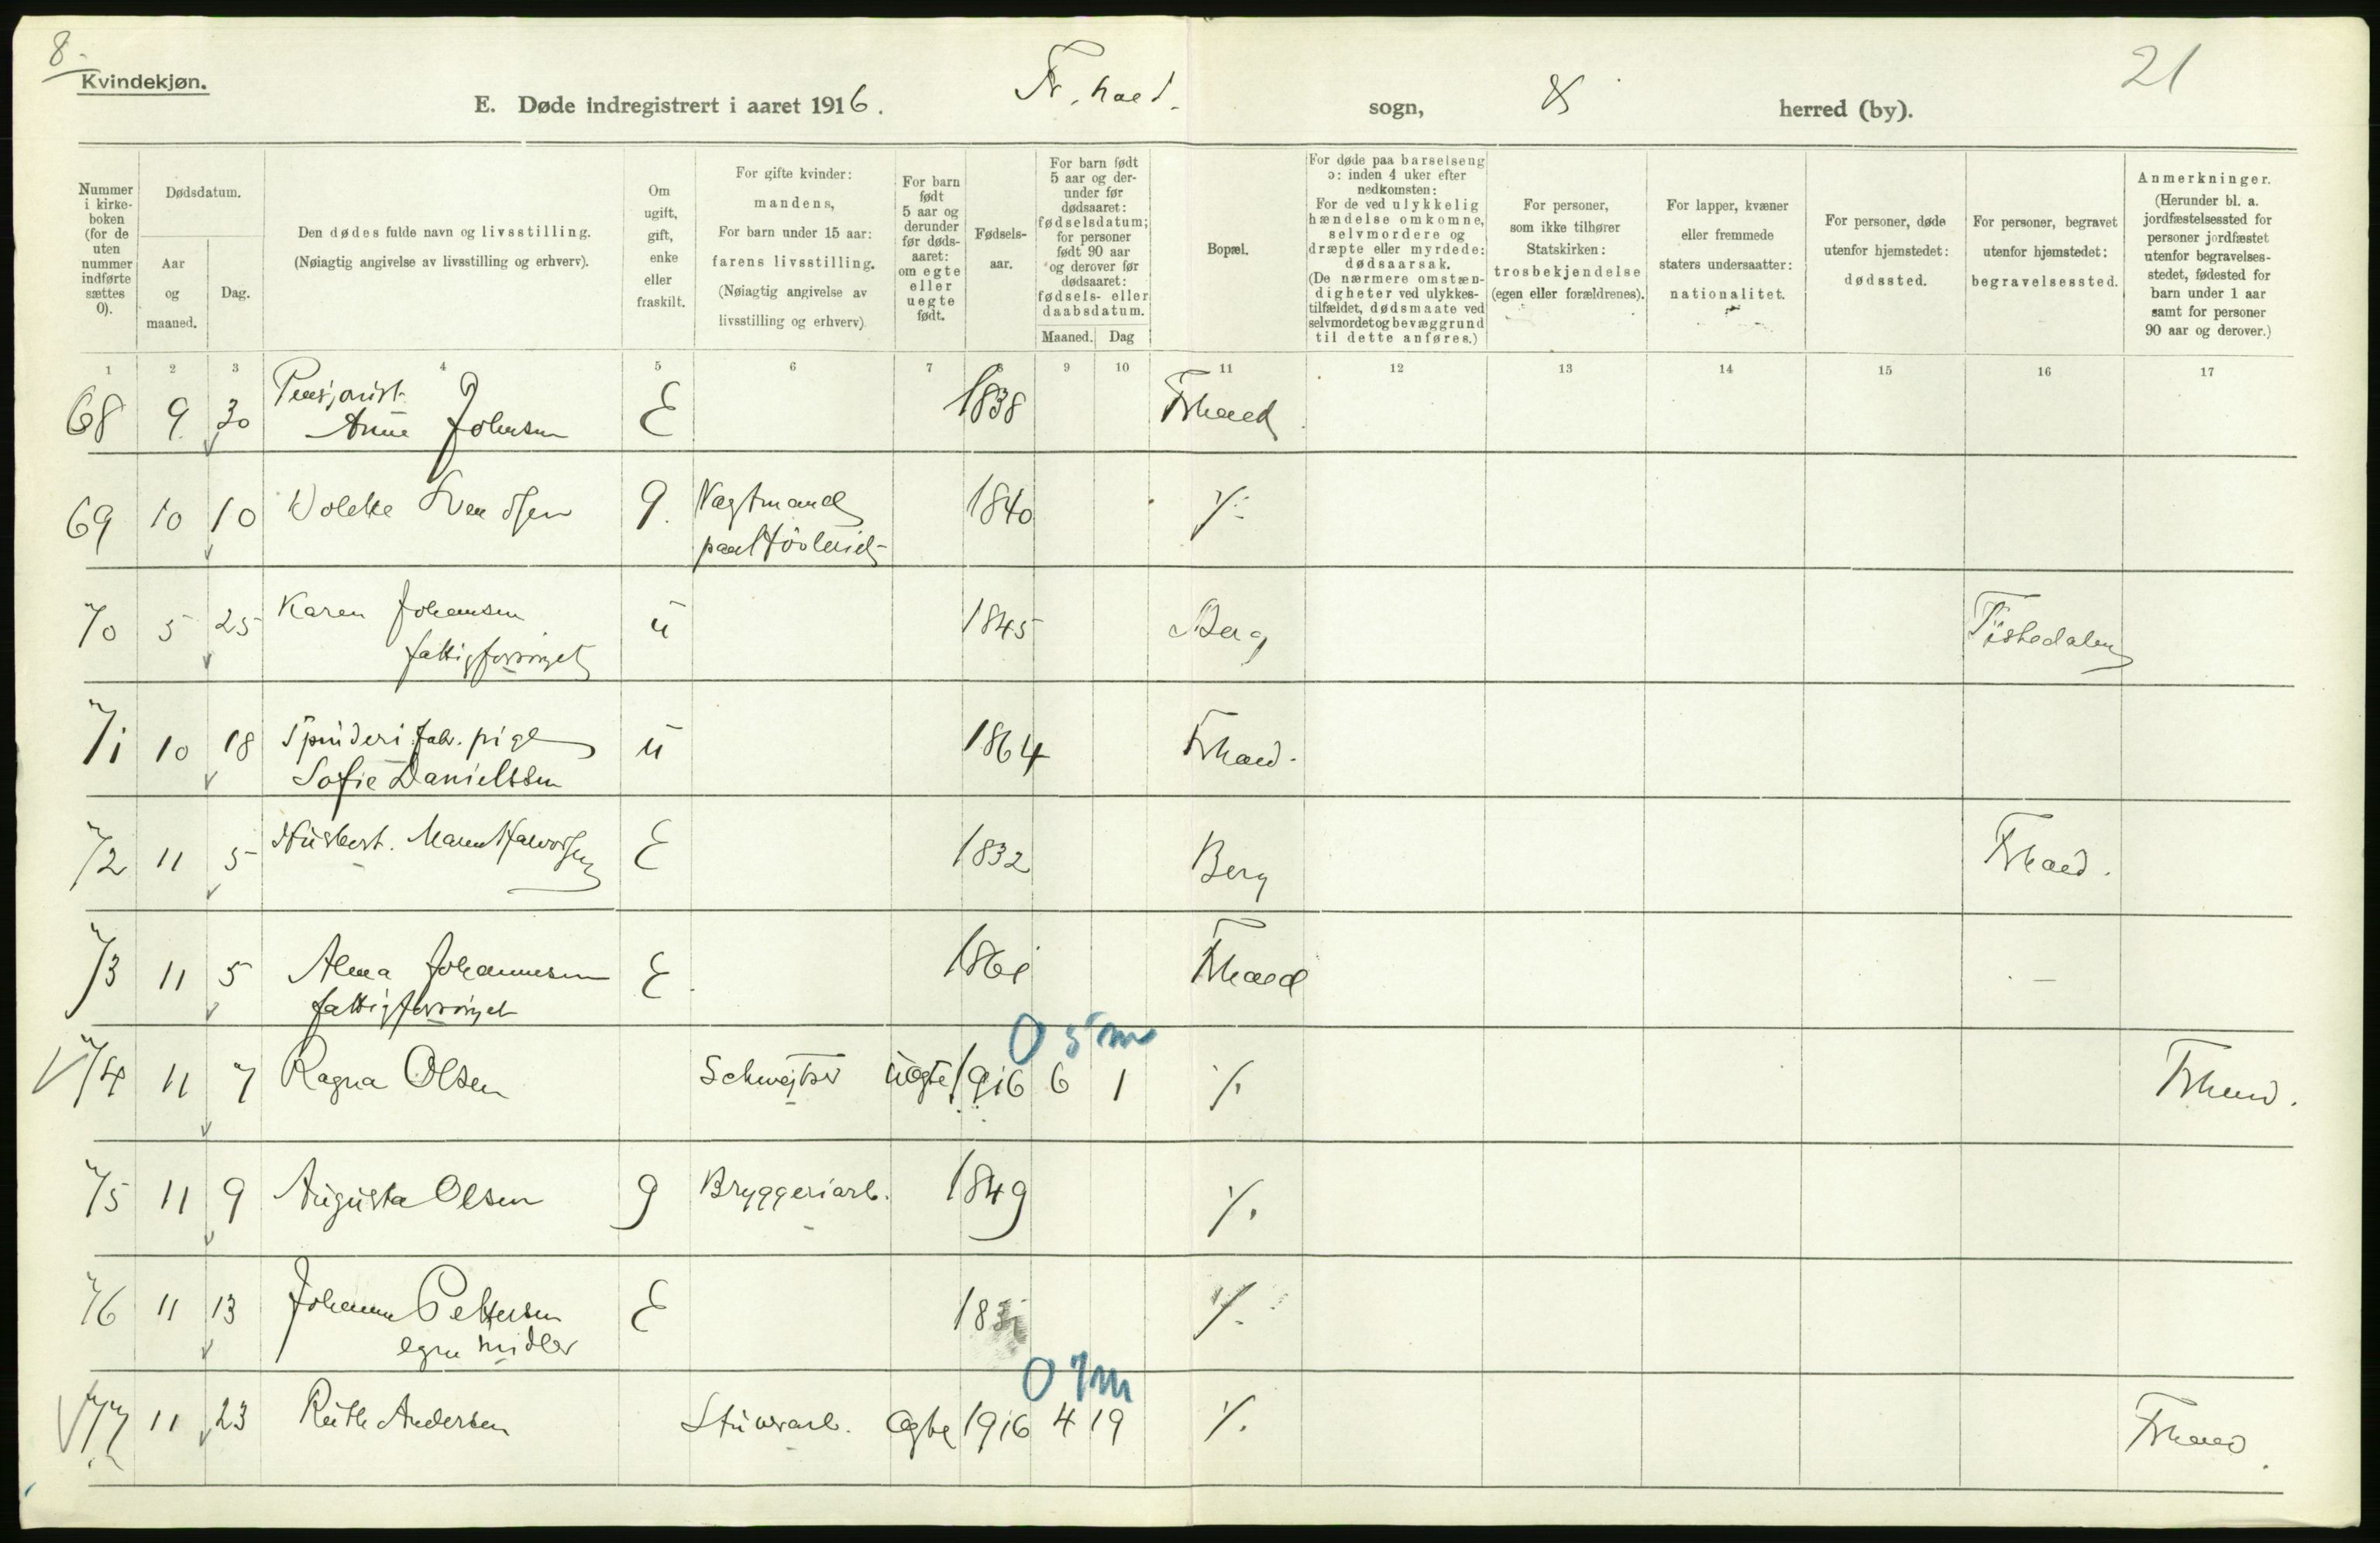 8.
Kvindekjøn.
E. Døde indregistrert i aaret 1916.
Fr.hald.
sogn,
herred (by).
21
Nummer i kirke-boken (for de uten nummer indførte sættes 0).
Dødsdatum.
Aar og maaned.
Dag.
Den dødes fulde navn og livsstilling.
(Nøiagtig angivelse av livsstilling og erhverv).
Om ugift, gift, enke eller fraskilt.
For gifte kvinder: mandens,
For barn under 15 aar: farens livsstilling.
(Nøiagtig angivelse av livsstilling og erhverv)
For barn født 5 aar og derunder før døds-aaret: om egte eller uegte født.
Fødsels-aar.
For barn født 5 aar og der-under før dødsaaret: fødselsdatum; for personer født 90 aar og derover før dødsaaret: fødsels- eller daabsdatum.
Maaned.
Dag
Bopæl.
For døde paa barselseng ɔ: inden 4 uker efter nedkomsten:
For de ved ulykkelig hændelse omkomne, selvmordere og dræpte eller myrdede: dødsaarsak.
(De nærmere omstæn-digheter ved ulykkes-tilfældet, dødsmaate ved selvmordet og bevæggrund til dette anføres.)
For personer, som ikke tilhører Statskirken: trosbekjendelse (egen eller forældrenes).
For lapper, kvæner eller fremmede staters undersaatter: nationalitet.
For personer, døde utenfor hjemstedet: dødssted.
For personer, begravet utenfor hjemstedet: begravelsessted.
Anmerkninger.
(Herunder bl. a. jordfæstelsessted for personer jordfæstet utenfor begravelses-stedet, fødested for barn under 1 aar samt for personer 90 aar og derover.)
1 2 3 4 5 6 7 8 9 10 11 12 13 14 15 16 17
Pensjonist
68 9 30 Anne Johnsen E 1838 Frhald
69 10 10 Svendsen g. Vagtmand 1840 ./.
paa
70 5 25 Karen Johansen u 1845 Berg Tistedalen
fattigforsörget
71 10 18 Spinderi fabr. pige u 1864 Frhald.
Sofie Danielssen
72 11 5 Husbest. Maren Halvorsen E 1832 Berg Frhald.
73 11 5 Alma Johannesen E 1861 Frhald —
fattigforsörget
0 5 m
74 11 7 Ragna Olsen Schwejtser uegte 1916 6 1 ./. Frhald.
75 11 9 Augusta Olsen g Bryggeriarb. 1849 ./.
76 11 13 Johanne Pettersen E ./.
egne midler
0 7m
77 11 23 Ruth Andersen Stuerarb. egte 1916 4 19 ./. Frhald.